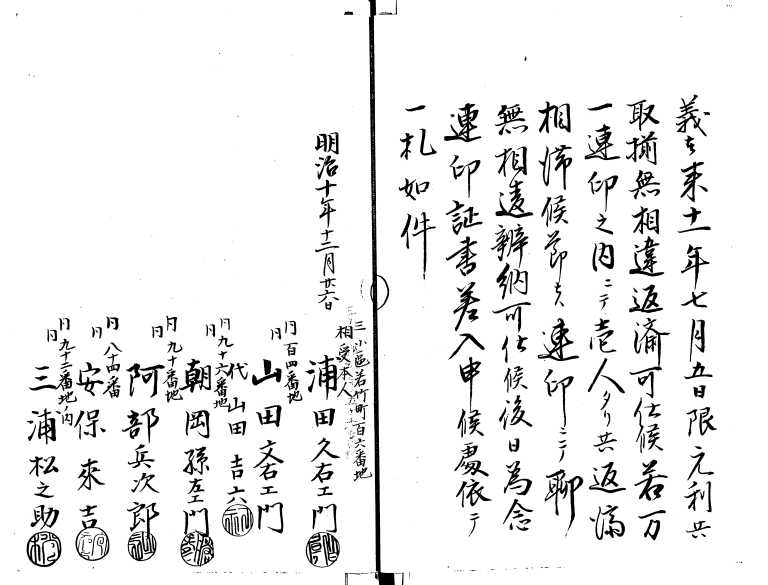 義ハ来十一年七月五日限元利共
取揃無相違返済可仕候若万
一連印之内ニテ壱人タリ共返済
相滞候節ハ連印ニテ聊
無相違辨納可仕候後日為念
連印証書差入申候處依テ
一札如件
明治十年十二月廿六日
三小区若竹町百六番地
相受本人
浦田久右エ門
同百四番地
同
山田文右エ門
同九十六番地
同
代山田吉六
朝岡孫左エ門
同九十番地
同
阿部兵次郎
同八十四番
同
安保来吉
同九十三番地ノ内
同
三浦松之助